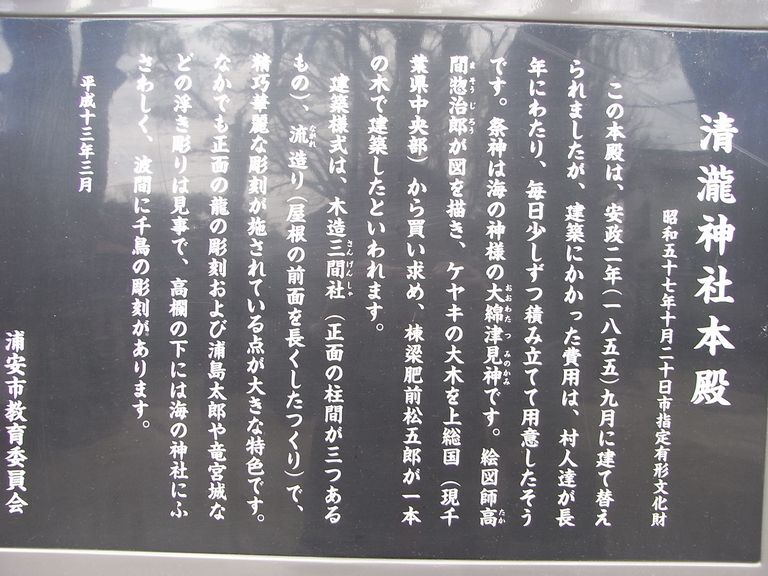 清瀧神社本殿
昭和五十七年十月二十日市指定有形文化財
この本殿は、安政二年(一八五五)九月に建て替え
られましたが、建築にかかった費用は、村人達が長
年にわたり、毎日少しずつ積み立てて用意したそう
です。祭神は海の神様の大綿津見神です。絵図師高
間惣治郎が図を描き、ケヤキの大木を上総国(現千
葉県中央部)から買い求め、棟梁肥前松五郎が一本
の木で建築したといわれます。
建築様式は、木造三間社(正面の柱間が三つある
もの)、流造り(屋根の前面を長くしたつくり)で、
精巧華麗な彫刻が施されている点が大きな特色です。
なかでも正面の龍の彫刻および浦島太郎や竜宮城な
どの浮き彫りは見事で、高欄の下には海の神社にふ
さわしく、波間に千鳥の彫刻があります。
平成十三年三月
浦安市教育委員会